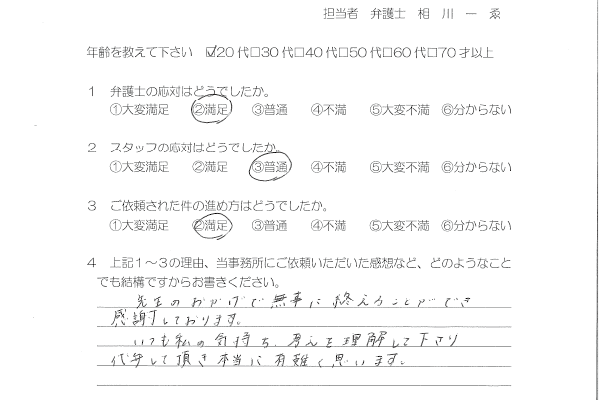 担当者 弁護士 相 川 一 ゑ
年齢を教えて下さい ☑20代□30代□40代□50代□60代□70才以上
1 弁護士の応対はどうでしたか。
①大変満足 ②満足 ③普通 ④不満 ⑤大変不満 ⑥分からない
2 スタッフの応対はどうでしたか。
①大変満足 ②満足 ③普通 ④不満 ⑤大変不満 ⑥分からない
3 ご依頼された件の進め方はどうでしたか。
①大変満足 ②満足 ③普通 ④不満 ⑤大変不満 ⑥分からない
4 上記1～3の理由、当事務所にご依頼いただいた感想など、どのようなこと
でも結構ですからお書きください。
先生のおかげで無事に終えることができ
感謝しております。
いつも私の気持ち、考えを理解して下さり
代弁して頂き本当に有難く思います。